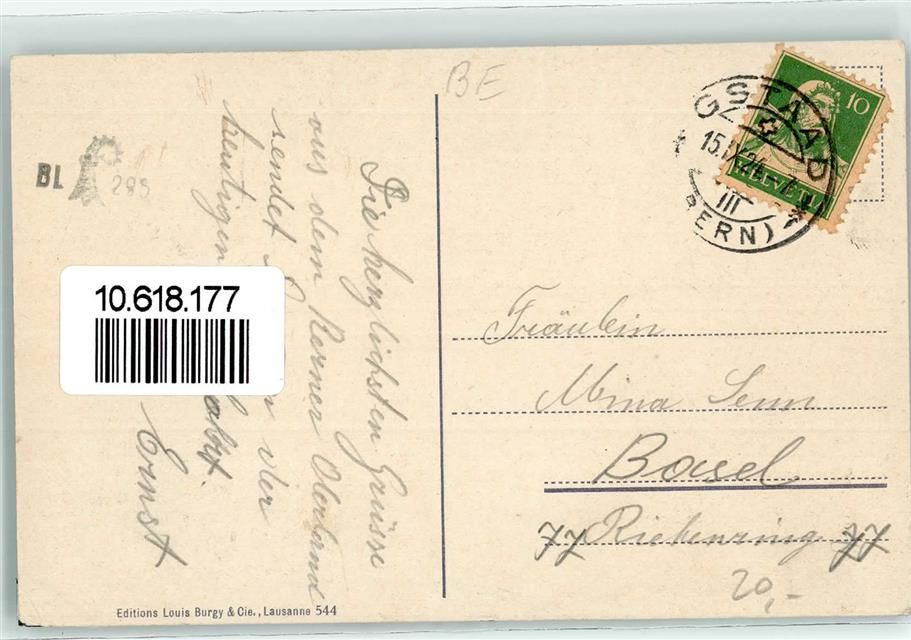 BE
BL
295
Die herzlichsten Grüsse
aus dem Berner Oberland
sendet der
heutigen
Ernst
10.618.177
GSTAAD
15.IX.24-7
III
(BERN)
10
HELVETIA
Fräulein
Mina Senn
Basel
77 Riehenring 77
20,-
Editions Louis Burgy & Cie., Lausanne 544